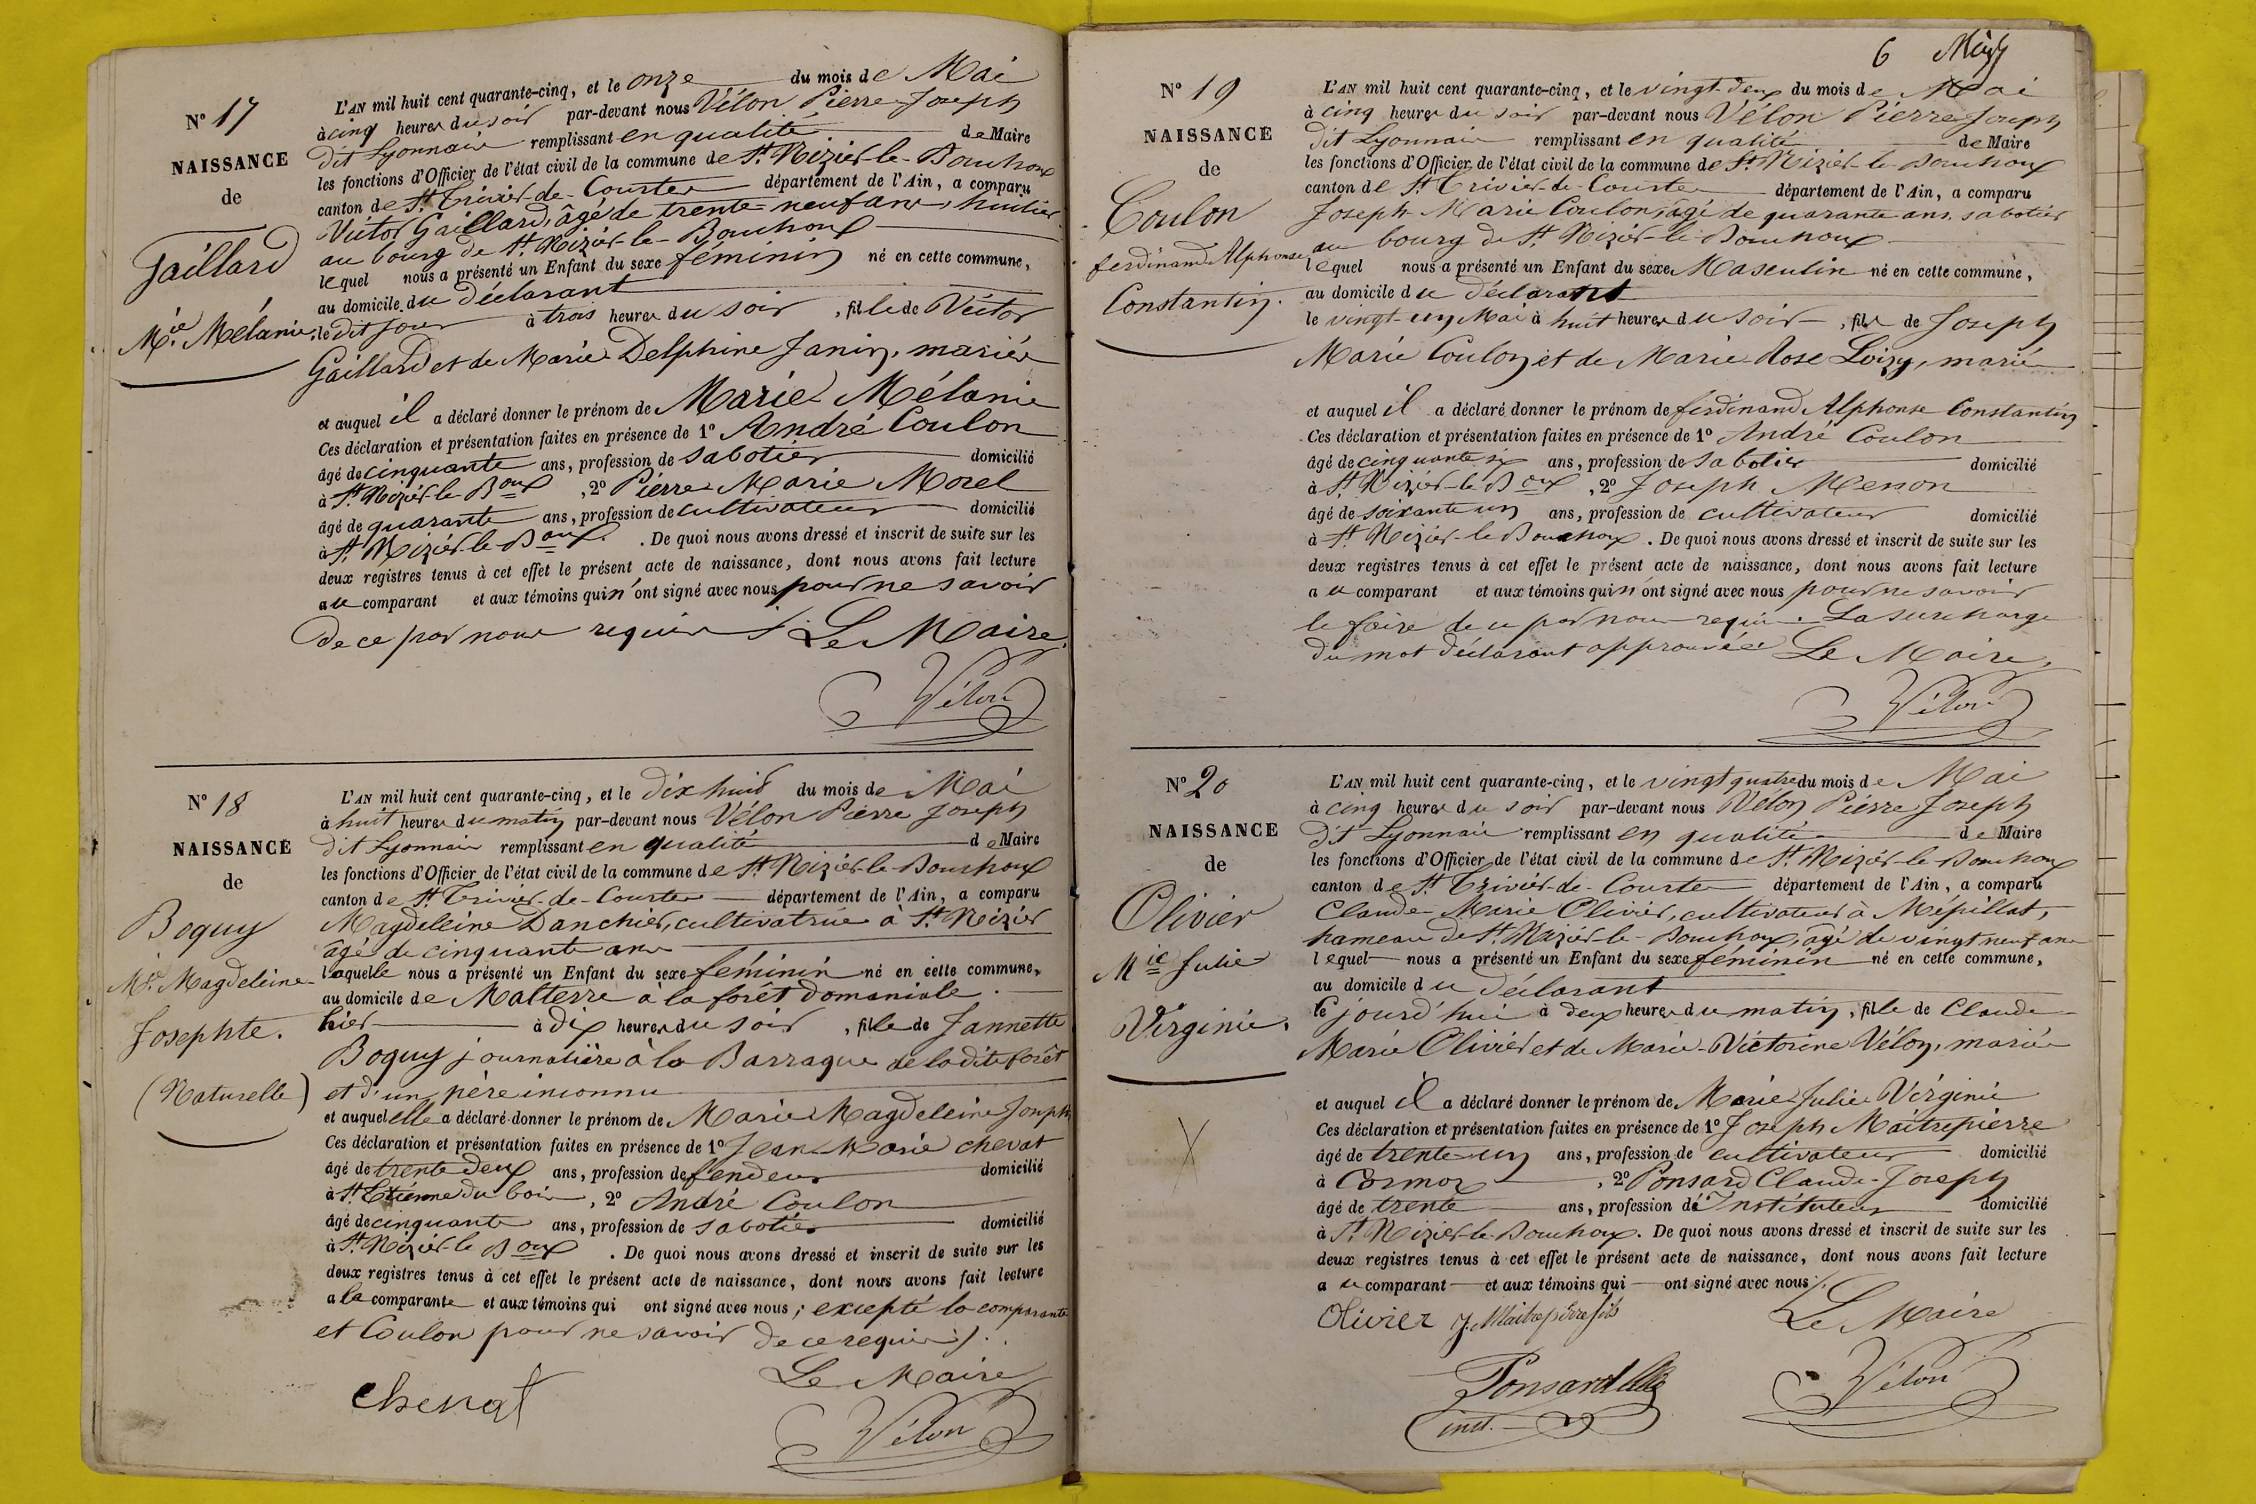 N° 17
NAISSANCE
de
Gaillard
M.ie Mélanie
L'AN mil huit cent quarante-cinq, et le onze du mois de Mai
à cinq heures du soir par-devant nous Vélon Pierre Joseph
dit Lyonnais remplissant en qualité de Maire
les fonctions d'Officier de l'état civil de la commune de St. Nizier-le-Bouchoux
canton de St. Trivier-de-Courtes département de l'Ain, a comparu
Victor Gaillard, âgé de trente neuf ans, huilier
au bourg de St. Nizier-le-Bouchoux
lequel nous a présenté un Enfant du sexe féminin né en cette commune,
au domicile du déclarant
le dit jour à trois heures du soir, fille de Victor
Gaillard et de Marie Delphine Janin, mariés
et auquel il a déclaré donner le prénom de Marie Mélanie
Ces déclaration et présentation faites en présence de 1° André Coulon
âgé de cinquante ans, profession de sabotier domicilié
à St. Nizier-le-Boux, 2° Pierre Marie Morel
âgé de quarante ans, profession de cultivateur domicilié
à St. Nizier-le-Boux. De quoi nous avons dressé et inscrit de suite sur les
deux registres tenus à cet effet le présent acte de naissance, dont nous avons fait lecture
au comparant et aux témoins qui n'ont signé avec nous pour ne savoir
de ce par nous requis. Le Maire,
Vélon
N° 18
NAISSANCE
de
Boguy
M.ie Magdeleine
Josephte.
(Naturelle)
L'AN mil huit cent quarante-cinq, et le dix huit du mois de Mai
à huit heures du matin par-devant nous Vélon Pierre Joseph
dit Lyonnais remplissant en qualité de Maire
les fonctions d'Officier de l'état civil de la commune de St. Nizier-le-Bouchoux
canton de St. Trivier-de-Courtes département de l'Ain, a comparu
Magdeleine Danchier, cultivatrice à St. Nizier
âgé de cinquante ans
laquelle nous a présenté un Enfant du sexe féminin né en cette commune,
au domicile de Malterre à la forêt domaniale.
hier à dix heures du soir, fille de Jannette
Boguy journalière à la Barraque de la dite forêt
et d'un père inconnu
et auquel elle a déclaré donner le prénom de Marie Magdeleine Josephte
Ces déclaration et présentation faites en présence de 1° Jean Marie Chevat
âgé de trente deux ans, profession de fendeur domicilié
à St. Etienne du bois, 2° André Coulon
âgé de cinquante ans, profession de sabotier domicilié
à St. Nizier-le-Boux. De quoi nous avons dressé et inscrit de suite sur les
deux registres tenus à cet effet le présent acte de naissance, dont nous avons fait lecture
a la comparante et aux témoins qui ont signé avec nous; excepté la comparante
et Coulon pour ne savoir de ce requis.
Le Maire
chevat
Vélon
6
N° 19
NAISSANCE
de
Coulon
ferdinand Alphonse
Constantin.
L'AN mil huit cent quarante-cinq, et le vingt-deux du mois de Mai
à cinq heures du soir par-devant nous Vélon Pierre Joseph
dit Lyonnais remplissant en qualité de Maire
les fonctions d'Officier de l'état civil de la commune de St. Nizier-le-Bouchoux
canton de St. Trivier-de-Courtes département de l'Ain, a comparu
Joseph Marie Coulon, âgé de quarante ans, sabotier
au bourg de St. Nizier-le-Bouchoux
lequel nous a présenté un Enfant du sexe Masculin né en cette commune,
au domicile du déclarant
le vingt-un Mai à huit heures du soir, fils de Joseph
Marie Coulon et de Marie Rose Loizy, mariés
et auquel il a déclaré donner le prénom de ferdinand Alphonse Constantin
Ces déclaration et présentation faites en présence de 1° André Coulon
âgé de cinquante six ans, profession de sabotier domicilié
à St. Nizier-le-Boux, 2° Joseph Menon
âgé de soixante un ans, profession de cultivateur domicilié
à St. Nizier-le-Bouchoux. De quoi nous avons dressé et inscrit de suite sur les
deux registres tenus à cet effet le présent acte de naissance, dont nous avons fait lecture
au comparant et aux témoins qui n'ont signé avec nous pour ne savoir
le faire de ce par nous requis. La surcharge
du mot déclarant approuvée Le Maire,
Vélon
N° 20
NAISSANCE
de
Olivier
M.ie Julie
Virginie.
L'AN mil huit cent quarante-cinq, et le vingt quatre du mois de Mai
à cinq heures du soir par-devant nous Vélon Pierre Joseph
dit Lyonnais remplissant en qualité de Maire
les fonctions d'Officier de l'état civil de la commune de St. Nizier-le-Bouchoux
canton de St. Trivier-de-Courtes département de l'Ain, a comparu
Claude Marie Olivier, cultivateur à Mépillat,
hameau de St. Nizier-le-Bouchoux, âgé de vingt neuf ans
lequel nous a présenté un Enfant du sexe féminin né en cette commune,
au domicile du déclarant
le jourd'hui à deux heures du matin, fille de Claude
Marie Olivier et de Marie-Victorine Vélon, mariés
et auquel il a déclaré donner le prénom de Marie Julie Virginie
Ces déclaration et présentation faites en présence de 1° Joseph Maitrepierre
âgé de trente un ans, profession de cultivateur domicilié
à Cormoz, 2° Ponsard Claude-Joseph
âgé de trente ans, profession de Instituteur domicilié
à St. Nizier-le-Bouchoux. De quoi nous avons dressé et inscrit de suite sur les
deux registres tenus à cet effet le présent acte de naissance, dont nous avons fait lecture
au comparant et aux témoins qui ont signé avec nous.
Olivier J. Maitrepierre fils Le Maire
Ponsard Vélon
inst.